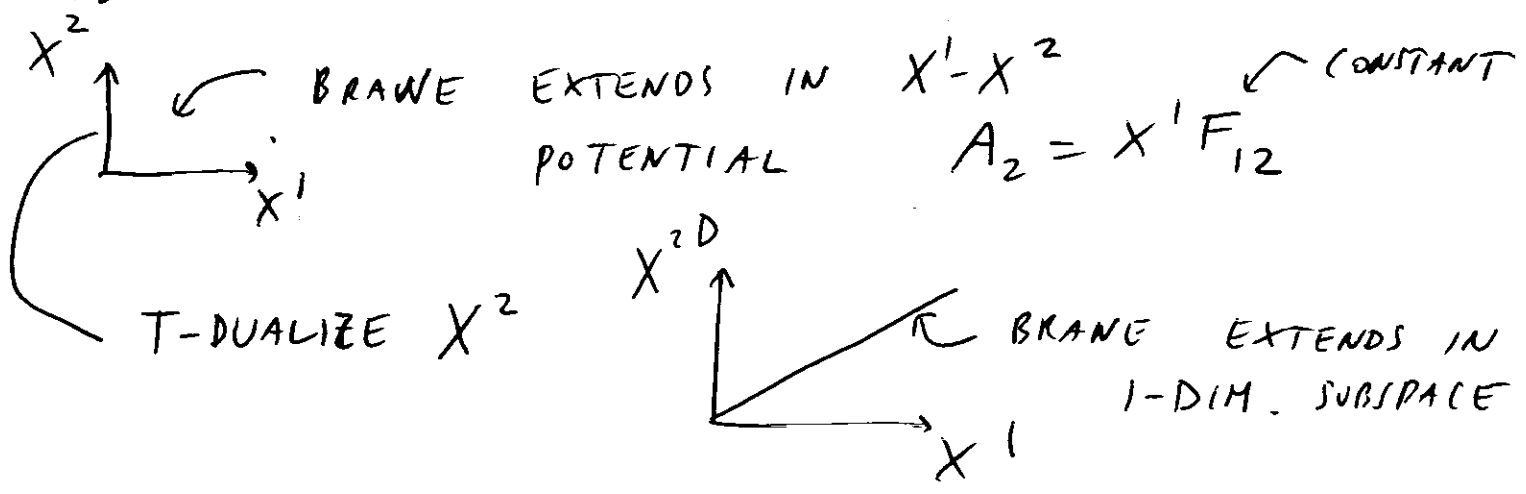 X²
BRANE EXTENDS IN X¹-X² CONSTANT
POTENTIAL A₂ = X¹ F₁₂
X¹
X²ᴰ
T-DUALIZE X²
BRANE EXTENDS IN
1-DIM. SUBSPACE
X¹